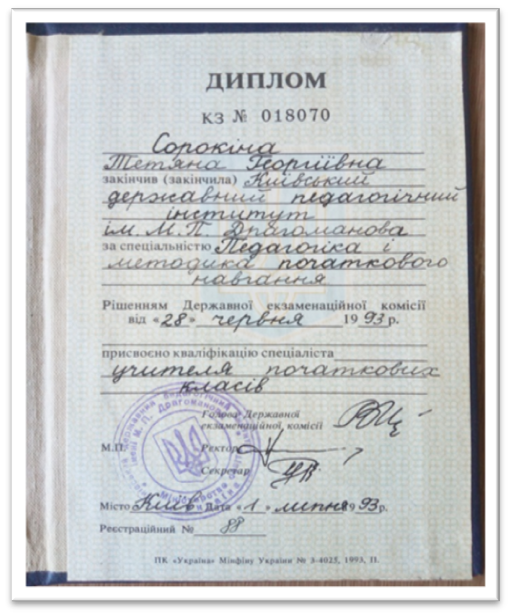 ДИПЛОМ
КЗ № 018070
Сорокіна
Тетяна Георгіївна
закінчив (закінчила) Київський
державний педагогічний
інститут
ім. М. П. Драгоманова
за спеціальністю Педагогіка і
методика початкового
навчання
Рішенням Державної екзаменаційної комісії
від «28» червня 1993 р.
присвоєно кваліфікацію спеціаліста
учителя початкових
класів
Голова Державної
екзаменаційної комісії
М.П.
Ректор
Секретар
Місто Київ Дата «1» липня 1993 р.
Реєстраційний № 88
ПК «Україна» Мінфіну України № 3-4025, 1993, П.